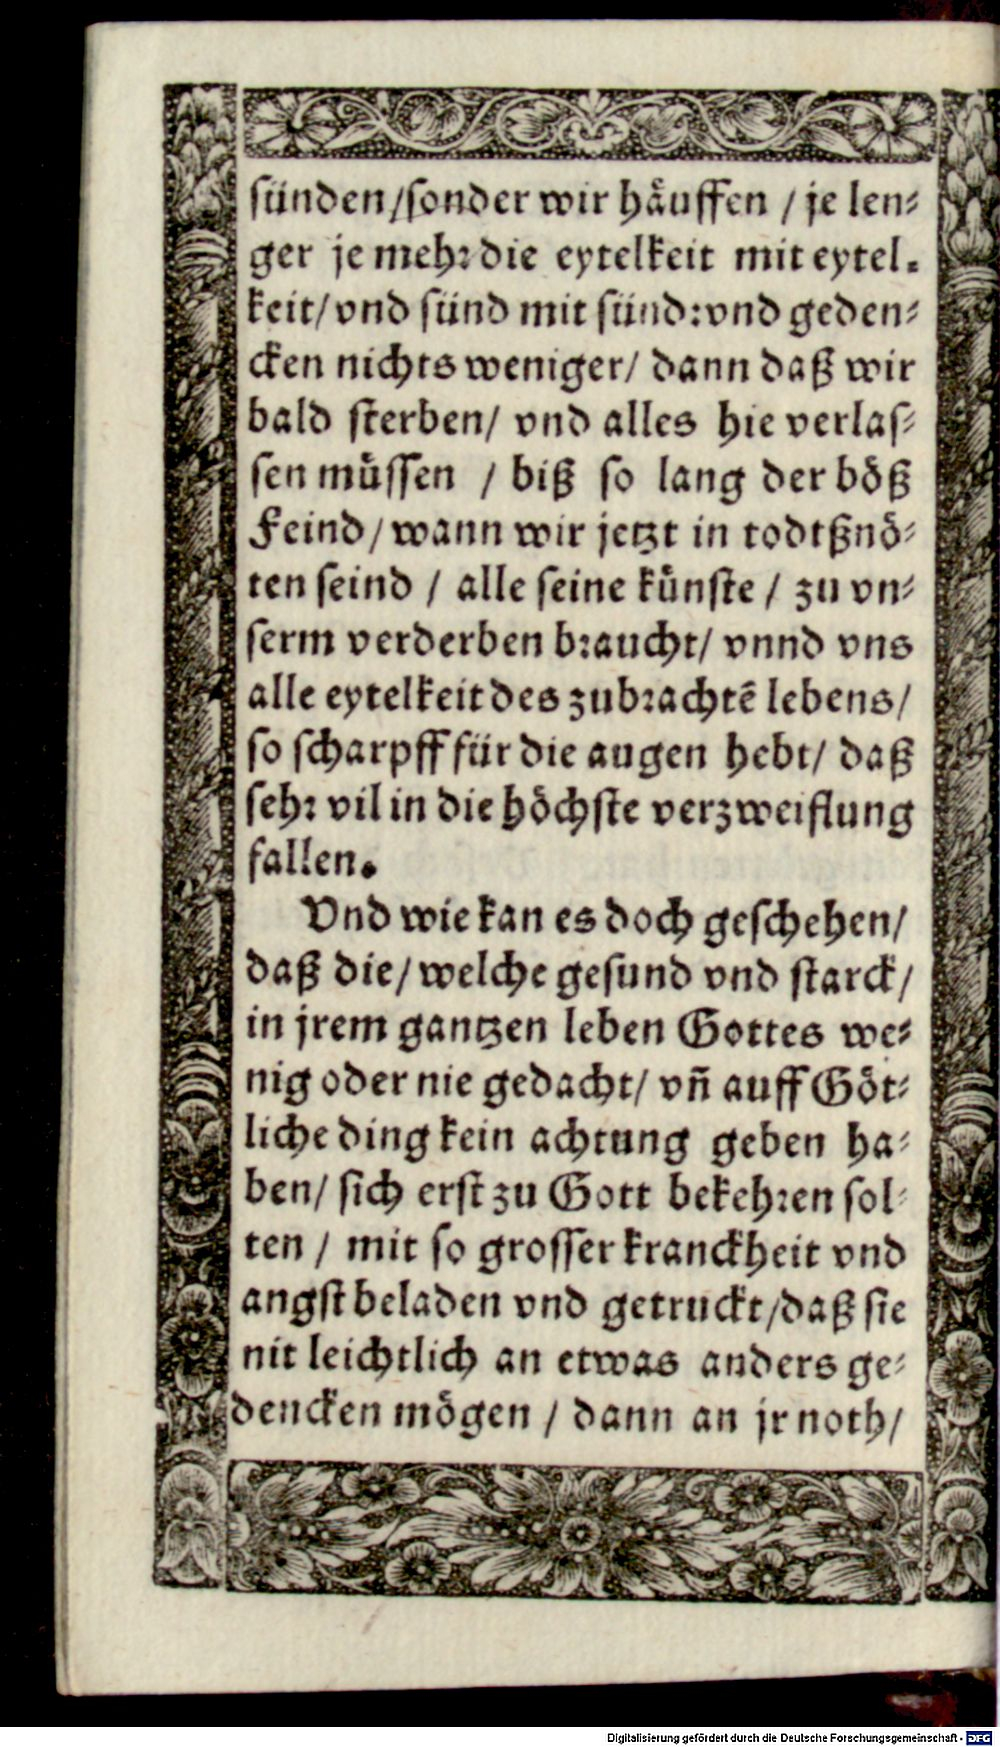 sünden/sonder wir häuffen / je len⸗
ger je mehr die eytelkeit mit eytel⸗
keit/ vnd sünd mit sünd: vnd geden⸗
cken nichts weniger/ dann daß wir
bald sterben/ vnd alles hie verlas⸗
sen müssen / biß so lang der böß
Feind/ wann wir jetzt in todtßnö⸗
ten seind / alle seine künste / zu vn⸗
serm verderben braucht/ vnnd vns
alle eytelkeit des zubrachtē lebens/
so scharpff für die augen hebt/ daß
sehr vil in die höchste verzweiflung
fallen.
Vnd wie kan es doch geschehen/
daß die/ welche gesund vnd starck/
in jrem gantzen leben Gottes we⸗
nig oder nie gedacht/ vñ auff Göt⸗
liche ding kein achtung geben ha⸗
ben/ sich erst zu Gott bekehren sol⸗
ten / mit so grosser kranckheit vnd
angst beladen vnd getruckt/daß sie
nit leichtlich an etwas anders ge⸗
dencken mögen / dann an jr noth/
Digitalisierung gefördert durch die Deutsche Forschungsgemeinschaft - DFG